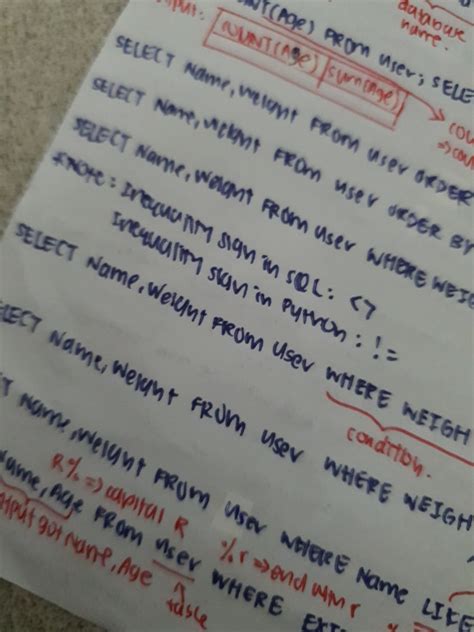 database
name.
COUNT(Age) FROM user; SELE
COUNT(Age) sum(Age)
SELECT Name, Weight FROM user ORDER
SELECT Name, Weight FROM user ORDER BY
SELECT Name, Weight FROM user WHERE WEIG
*Note: Inequality sign in SQL: <>
Inequality sign in Python: !=
SELECT Name, Weight FROM user WHERE WEIGH
condition.
ELECT Name, Weight FROM user WHERE WEIGH
CT Name, Weight FROM user WHERE Name LIKE
R% => capital R %r => end with r
Name, Age FROM user WHERE
Name, Age table